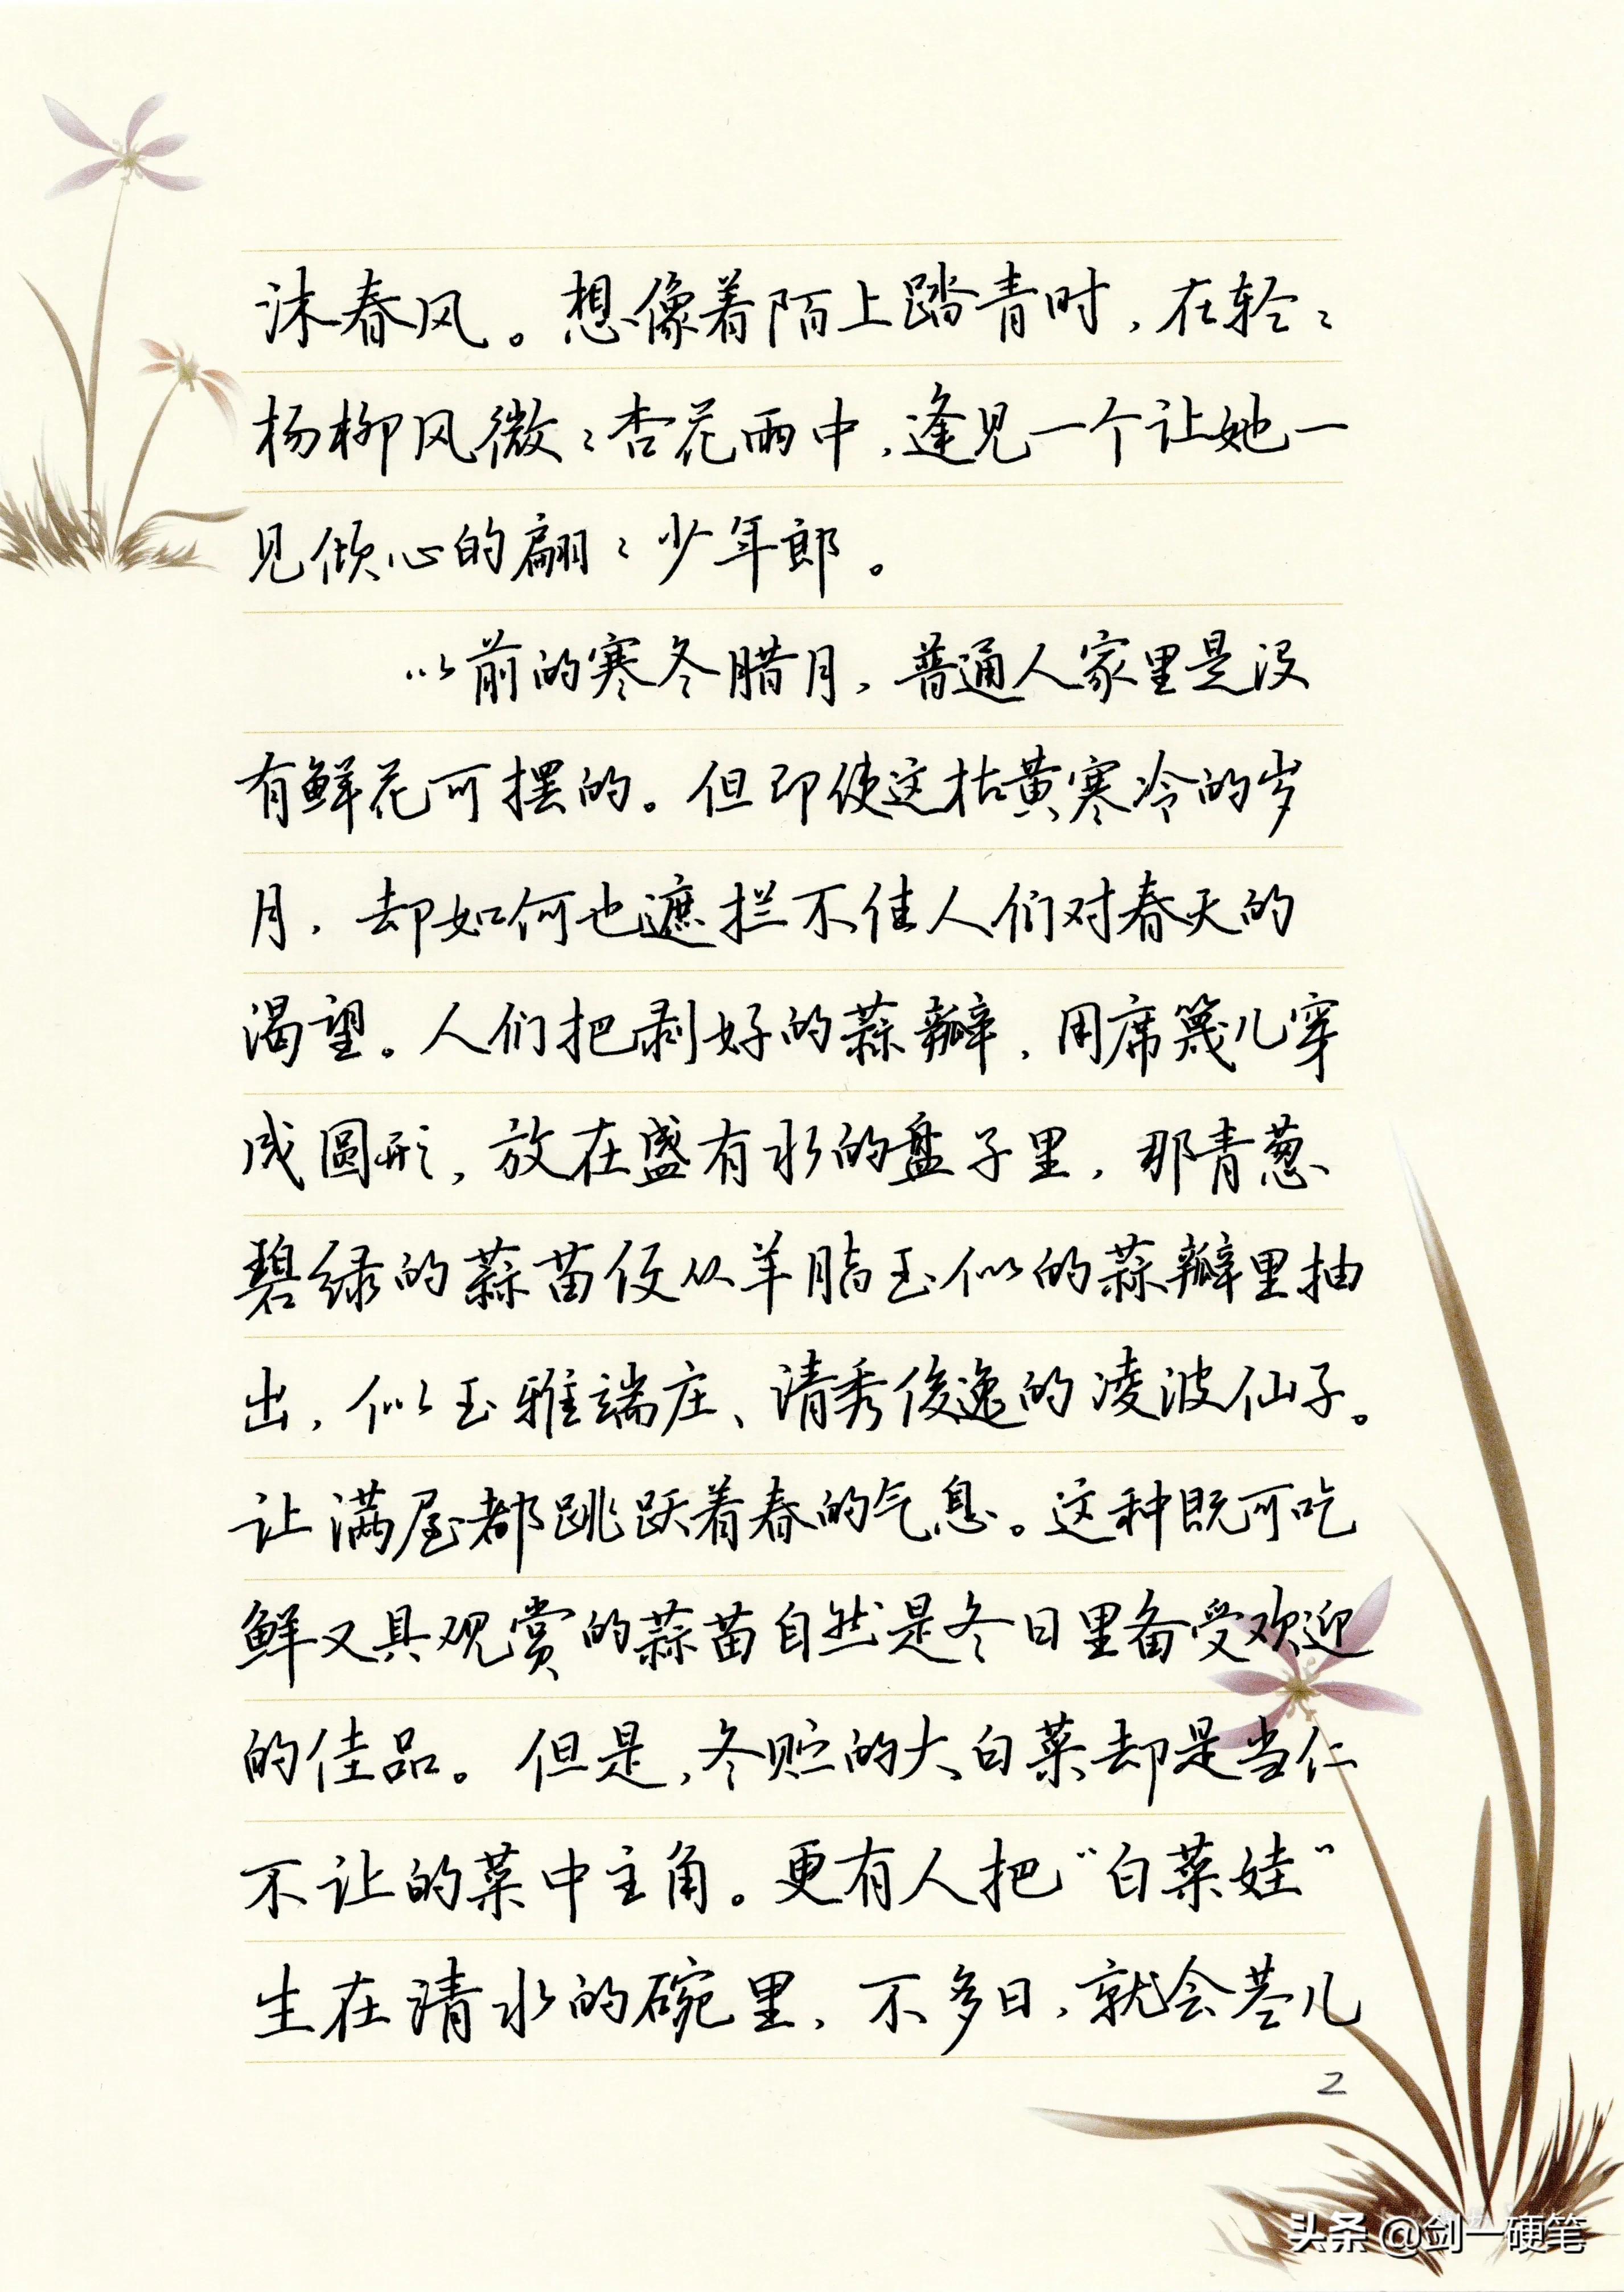 沐春风。想像着陌上踏青时，在轻〻
杨柳风微〻杏花雨中，逢见一个让她一
见倾心的翩〻少年郎。
以前的寒冬腊月，普通人家里是没
有鲜花可摆的。但即使这枯黄寒冷的岁
月，却如何也遮拦不住人们对春天的
渴望。人们把剥好的蒜瓣，用席篾儿穿
成圆形，放在盛有水的盘子里，那青葱
碧绿的蒜苗便从羊脂玉似的蒜瓣里抽
出，似玉雅端庄、清秀俊逸的凌波仙子。
让满屋都跳跃着春的气息。这种既可吃
鲜又具观赏的蒜苗自然是冬日里备受欢迎
的佳品。但是，冬贮的大白菜却是当仁
不让的菜中主角。更有人把“白菜娃”
生在清水的碗里，不多日，就会茎儿
2
头条 @剑一硬笔